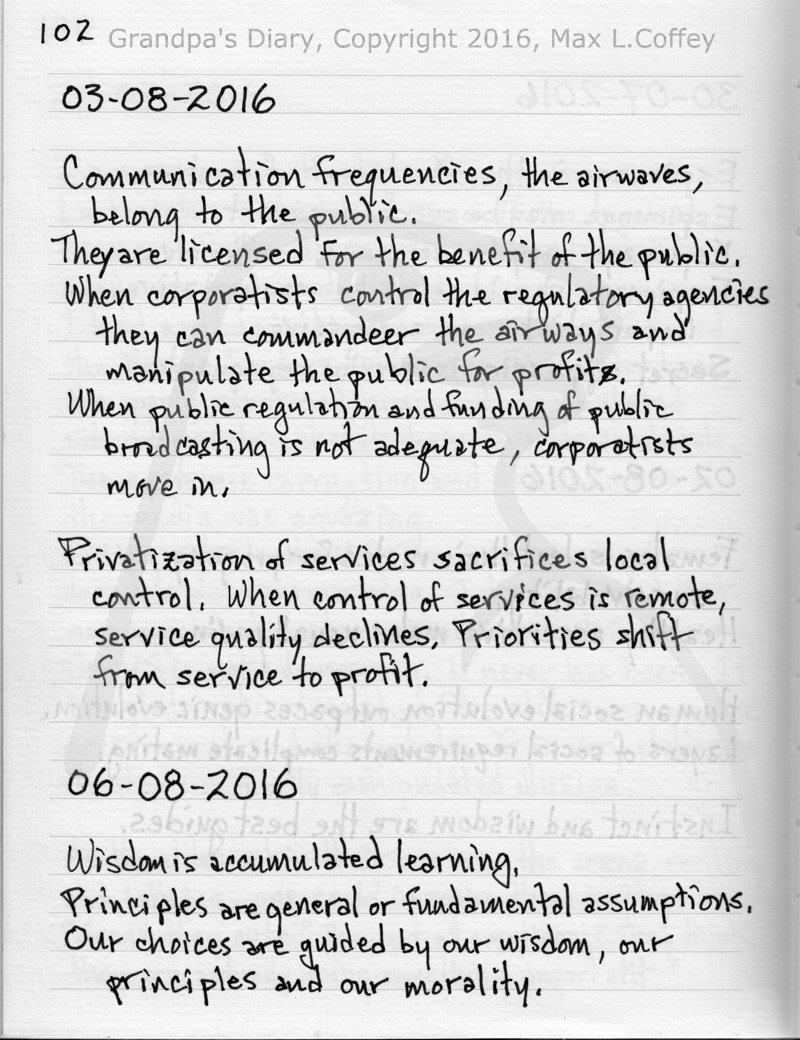 102 Grandpa's Diary, Copyright 2016, Max L.Coffey
03-08-2016
Communication frequencies, the airwaves,
belong to the public.
They are licensed for the benefit of the public.
When corporatists control the regulatory agencies
they can commandeer the airways and
manipulate the public for profits.
When public regulation and funding of public
broadcasting is not adequate, corporatists
move in.
Privatization of services sacrifices local
control. When control of services is remote,
service quality declines. Priorities shift
from service to profit.
06-08-2016
Wisdom is accumulated learning.
Principles are general or fundamental assumptions.
Our choices are guided by our wisdom, our
principles and our morality.